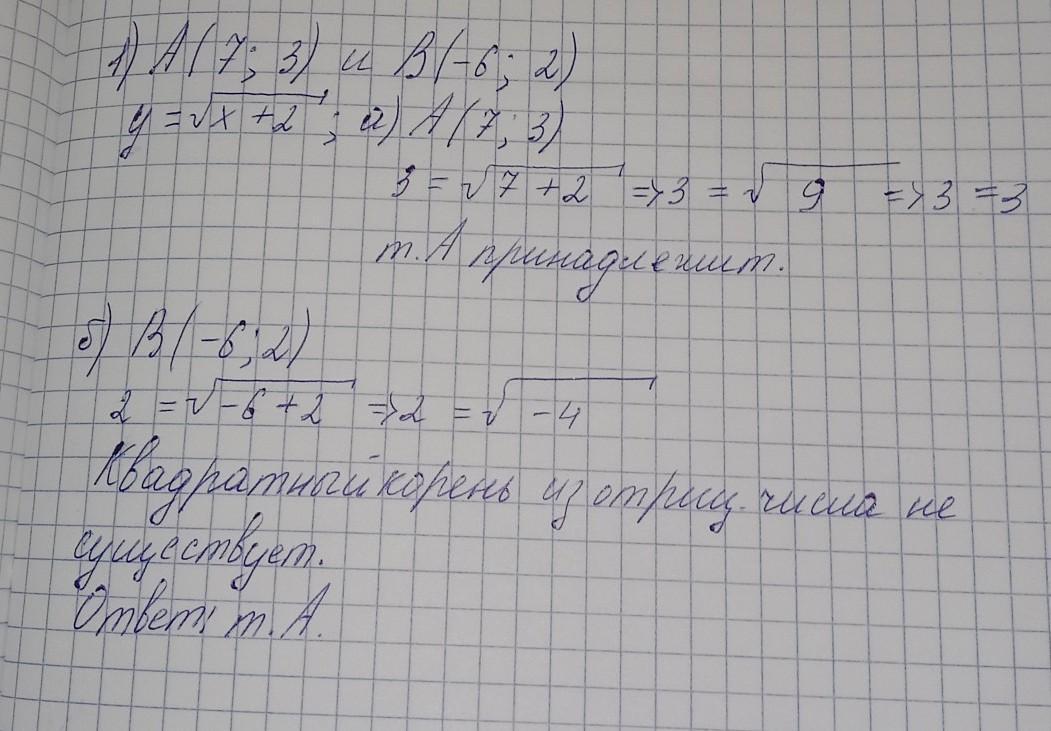 1) А(7; 3) и В(-6; 2)
у = √x + 2 ; а) А(7; 3)
3 = √7 + 2 => 3 = √9 => 3 = 3
т. А принадлежит.
б) В(-6; 2)
2 = √-6 + 2 => 2 = √-4
Квадратный корень из отриц. числа не
существует.
Ответ: т. А.